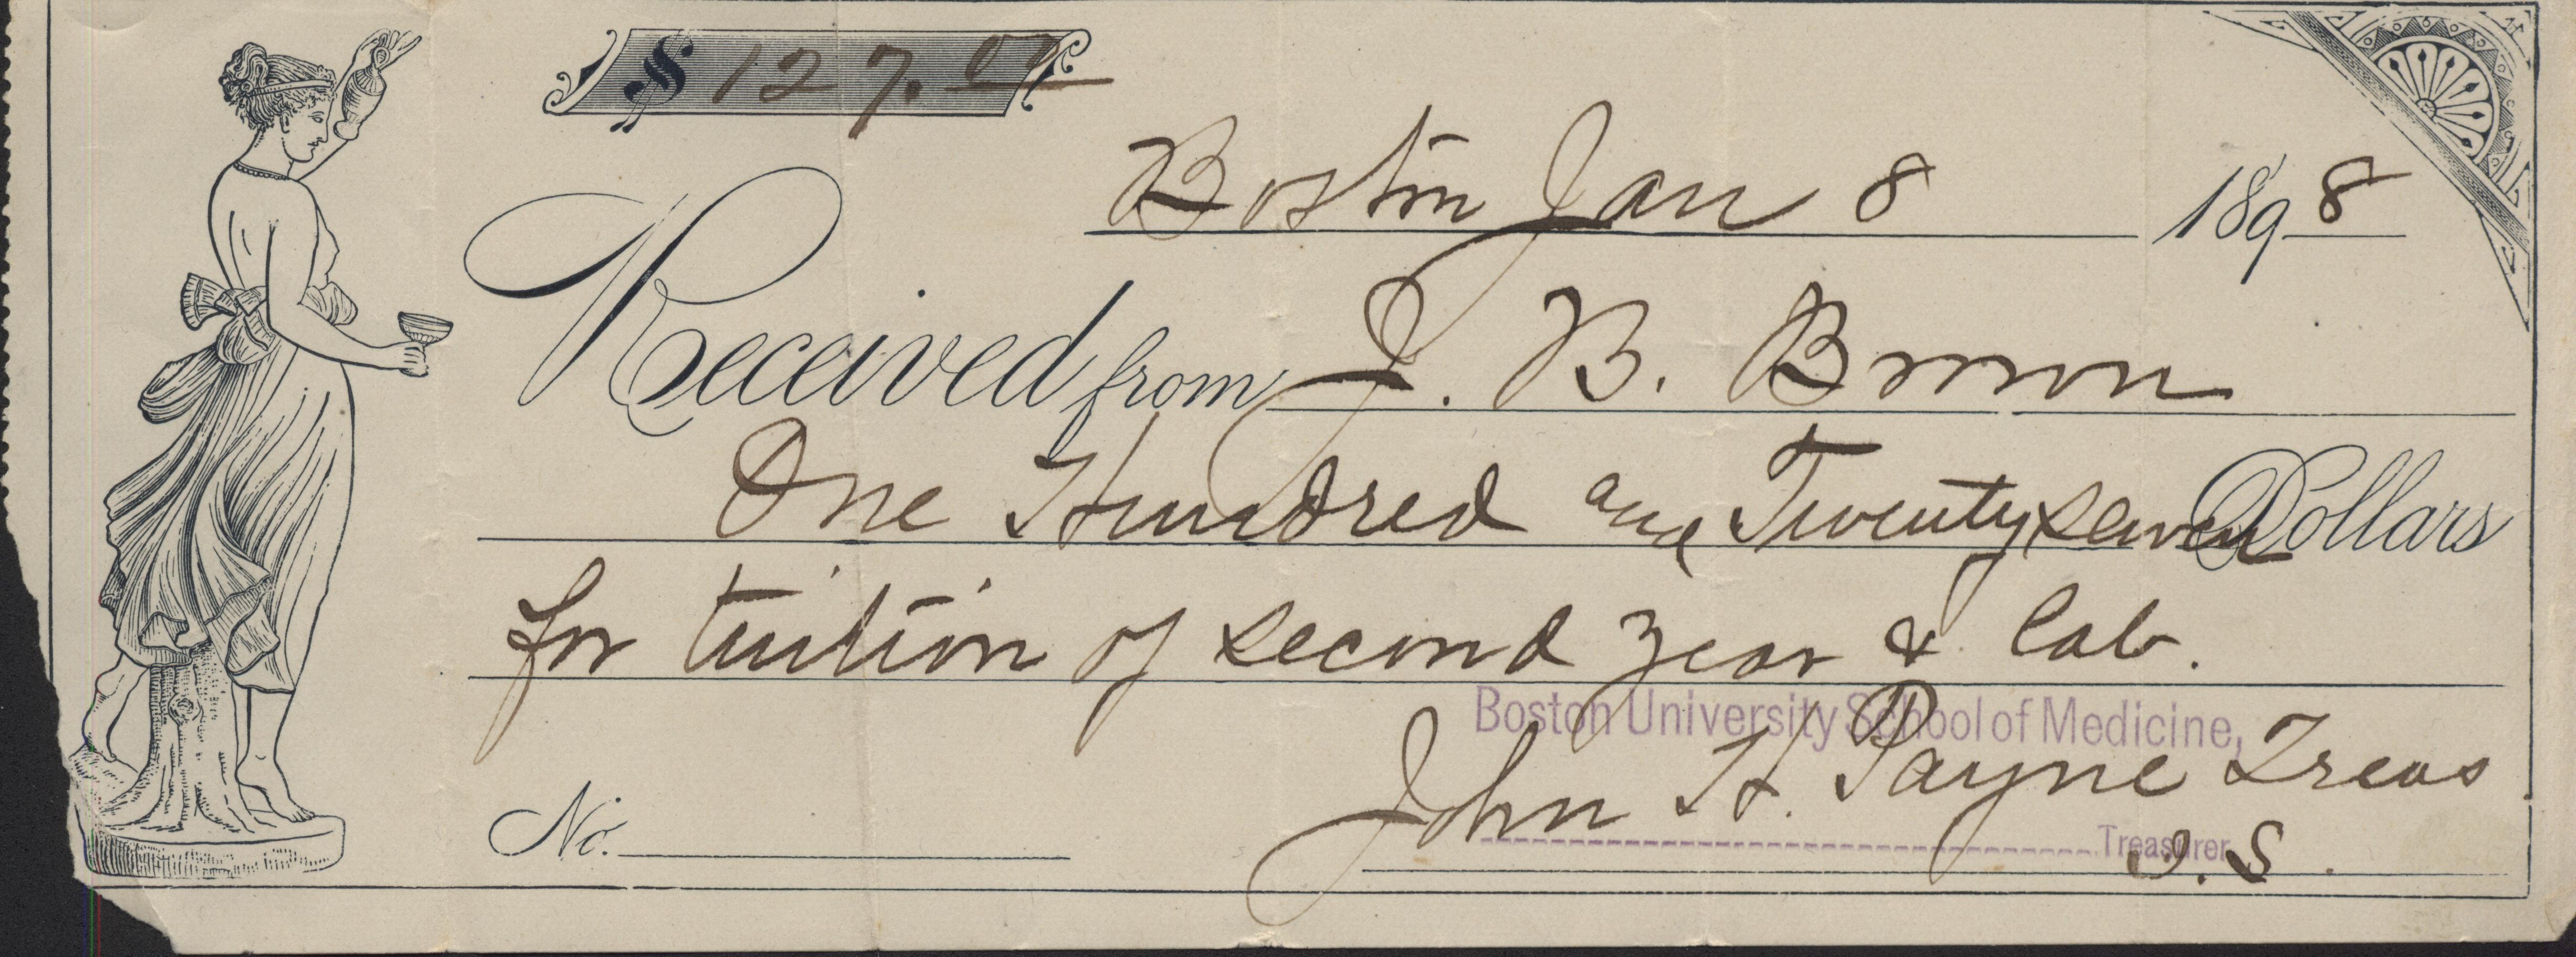 $ 127.00
Boston Jan 8 1898
Received from J. B. Brown
One Hundred and Twenty seven Dollars
for tuition of second year & lab.
Boston University School of Medicine,
John H. Payne Treas
Treasurer
No. S.